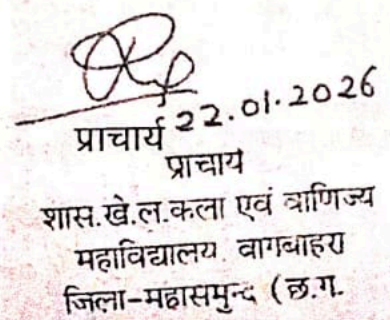 22.01.2026
प्राचार्य
प्राचार्य
शास.खे.ल.कला एवं वाणिज्य
महाविद्यालय बागबाहरा
जिला-महासमुन्द (छ.ग.